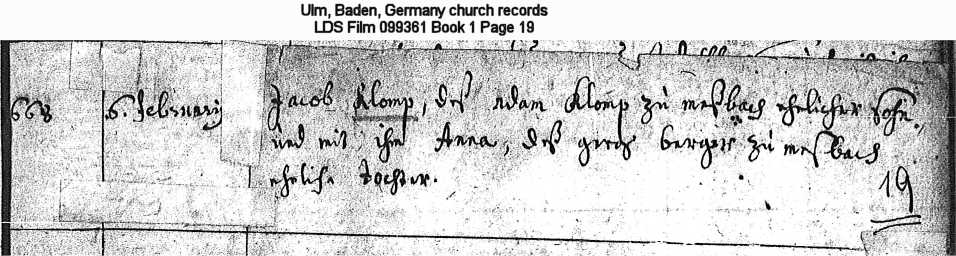 Ulm, Baden, Germany church records
LDS Film 099361 Book 1 Page 19
668 6. Februarij Jacob Klomp, deß Adam Klomp zu meßbach ehelicher Sohn,
und mit ihm Anna, deß georg berger zu meßbach
eheliche Tochter.
19